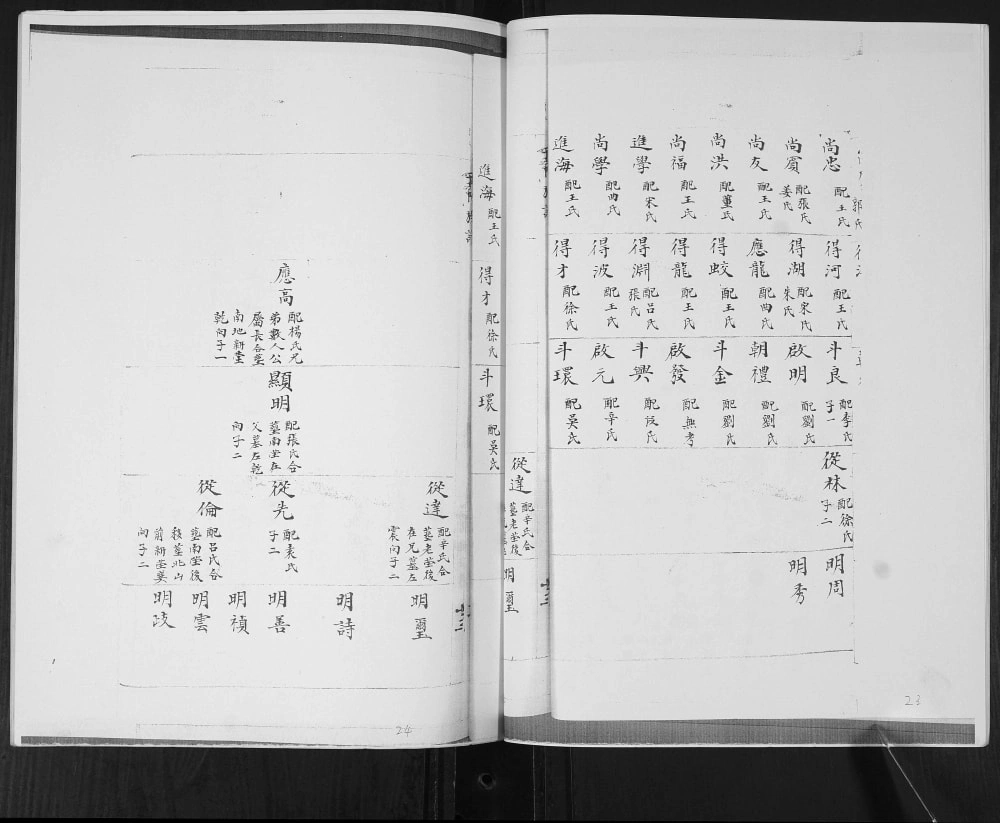 郭氏
尚忠
配王氏
尚賓
配張氏
姜氏
尚友
配王氏
尚洪
配董氏
尚福
配王氏
進學
配宋氏
尚學
配曲氏
進海
配王氏
得河
配王氏
得湖
配宋氏
朱氏
應龍
配曲氏
得蛟
配王氏
得龍
配王氏
得淵
配呂氏
張氏
得波
配王氏
得才
配徐氏
斗良
配李氏
子一
啟明
配劉氏
朝禮
配劉氏
斗金
配劉氏
啟發
配無考
斗興
啟元
配辛氏
斗環
配吳氏
從林
配徐氏
子二
明周
明秀
23
從達
配辛氏合
葬老塋後
明璽
廿三
進海
配王氏
得才
配徐氏
斗環
配吳氏
應高
配楊氏兄
弟數人公
屬長合塋
南地新塋
乾向子一
顯明
配張氏合
葬南塋在
父墓左乾
向子二
從達
配辛氏合
葬老塋後
在兄墓左
震向子二
從先
配袁氏
子二
從倫
配呂氏合
葬南塋後
移葬北山
前新塋巽
向子二
明璽
明詩
明善
明禎
明雲
明歧
24